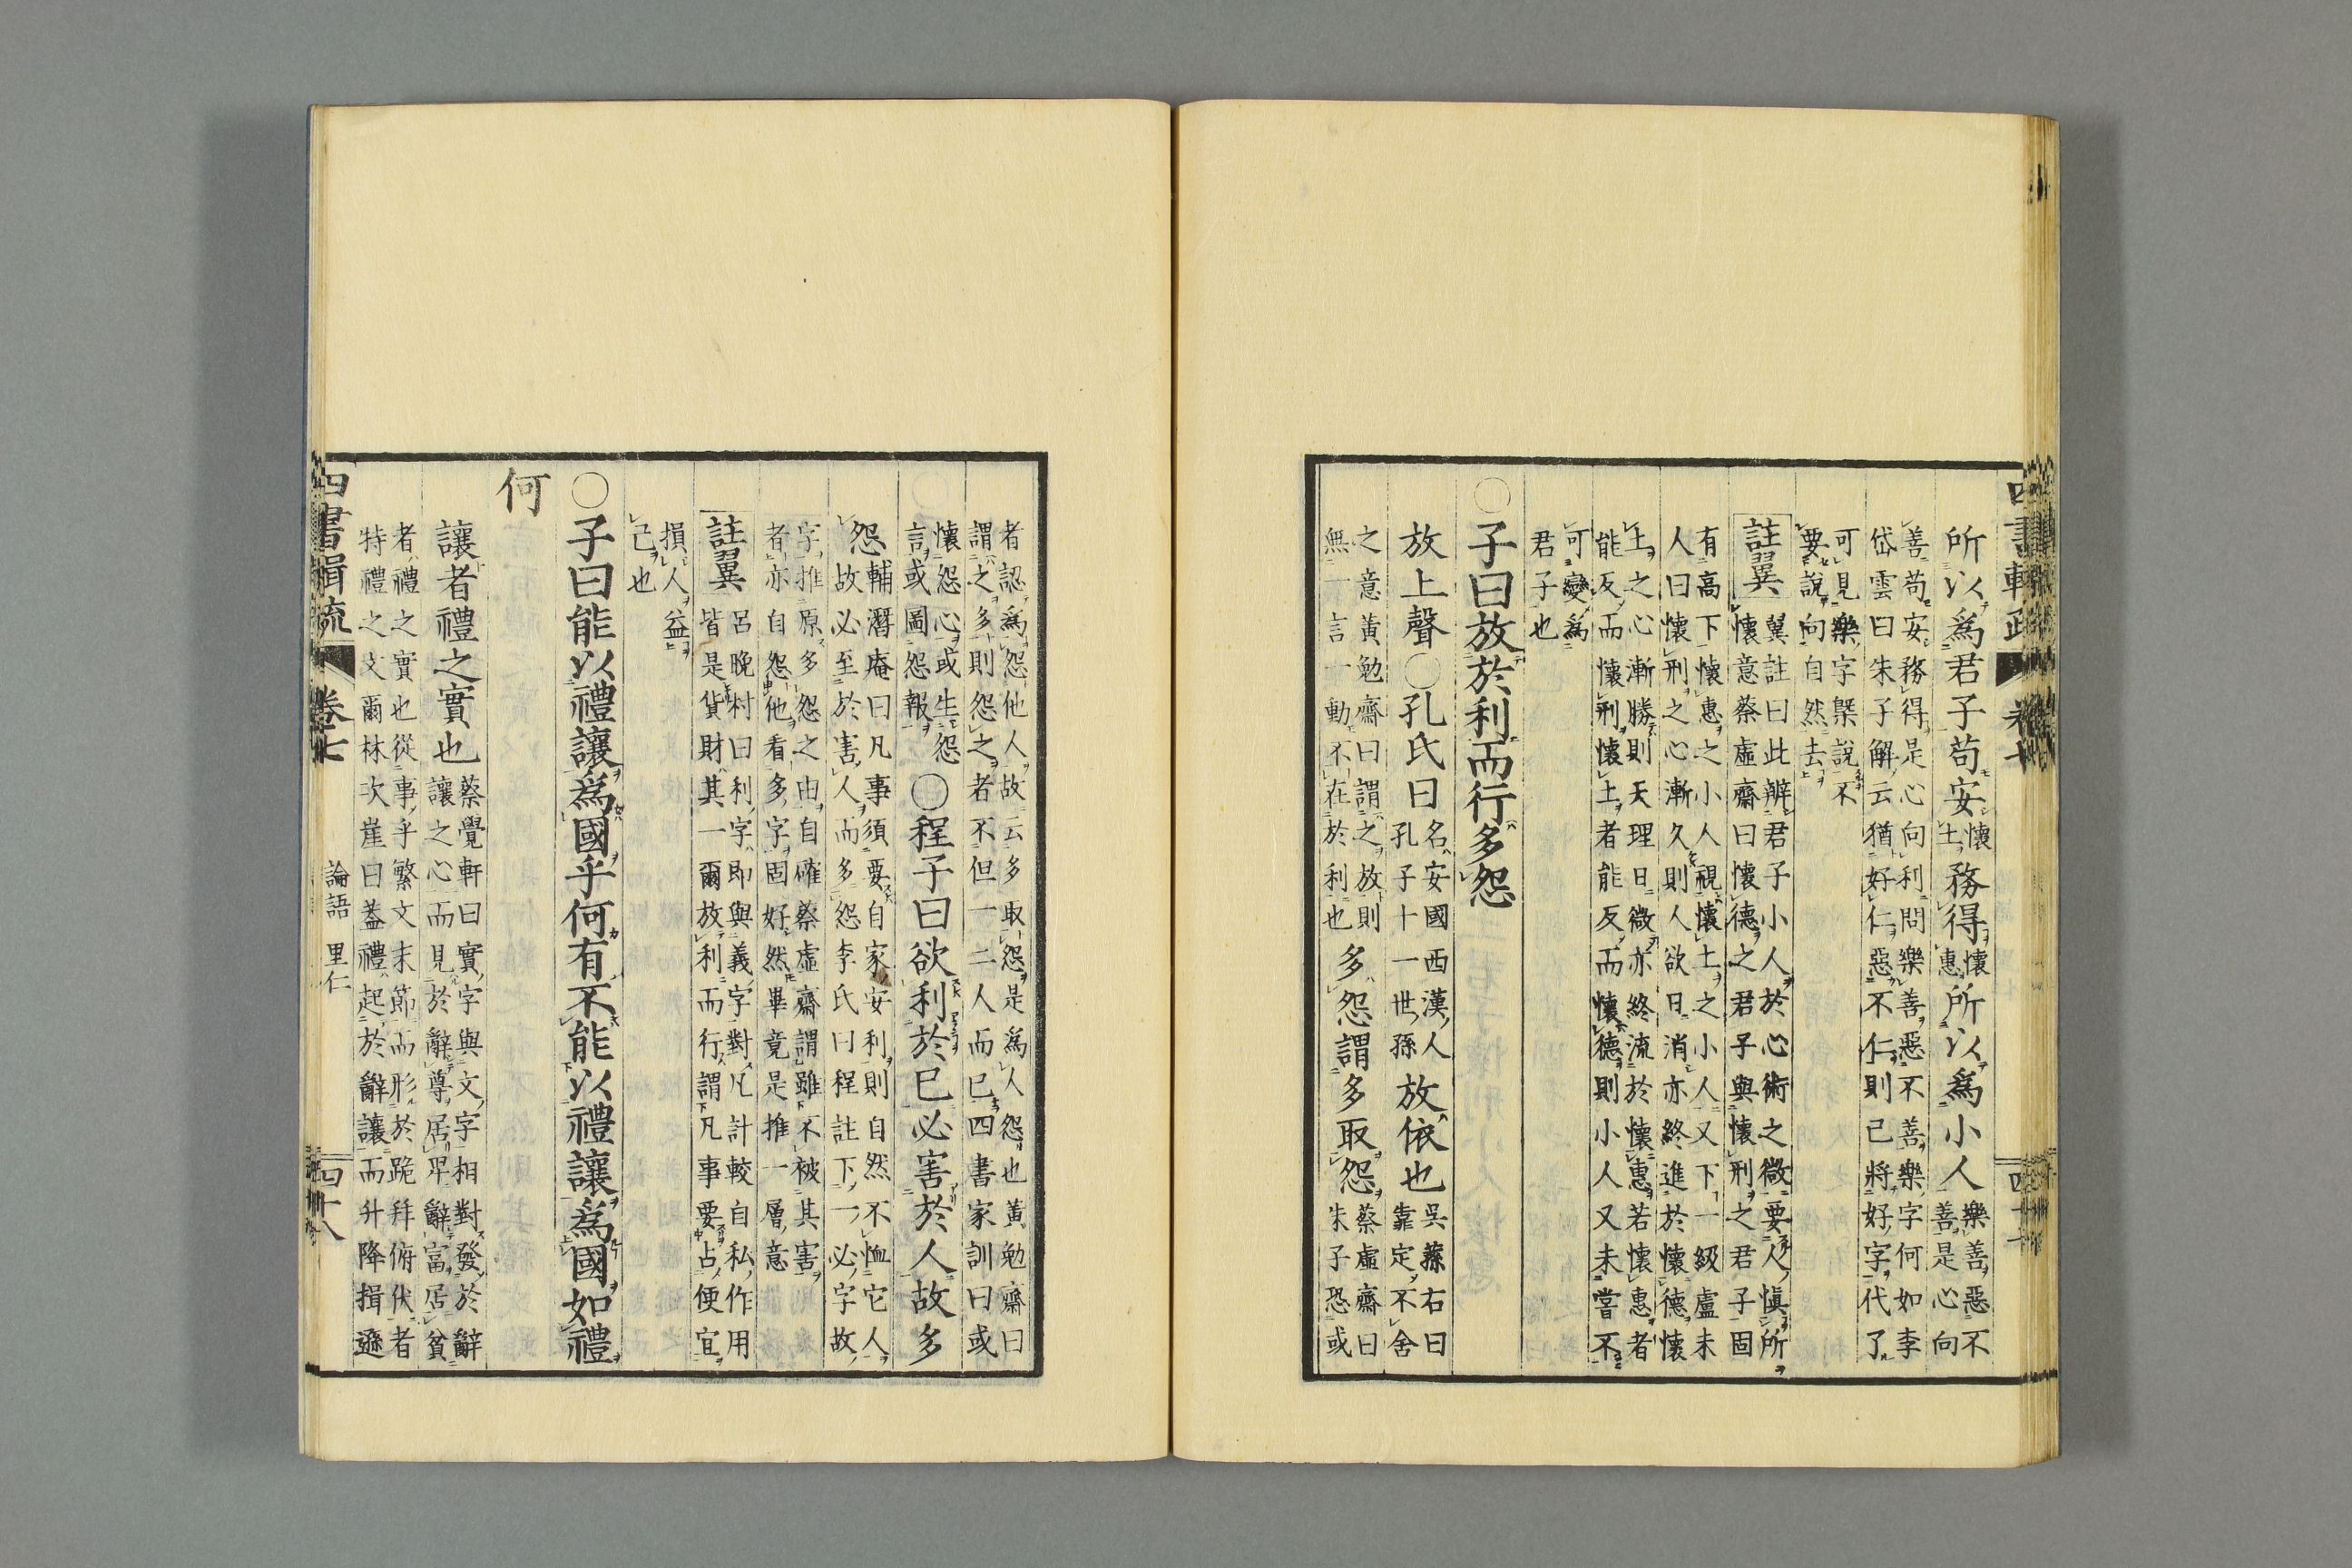 所以爲君子苟安懷土務得懷惠所以爲小人樂善惡不善是心向
善苟安務得是心向利問樂善惡不善樂字何如李
岱雲曰朱子解云猶好仁惡不仁則已將好字代了
可見樂字槩説不
要説向自然去
註翼 翼註曰此辨君子小人於心術之微要人愼所
懷意蔡虛齋曰懷德之君子與懷刑之君子固
有高下懷惠之小人視懷土之小人又下一級盧未
人曰懷刑之心漸久則人欲日消亦終進於懷德懷
土之心漸勝則天理日微亦終流於懷惠若懷惠者
能反而懷刑懷土者能反而懷德則小人又未嘗不
可變爲
君子也
○子曰放於利而行多怨
放上聲○孔氏曰名安國西漢人孔子十一世孫放依也吳蓀右曰靠定不舍
之意黄勉齋曰謂之放則
無一言一動不在於利也
多怨謂多取怨蔡虛齋曰朱子恐或
者認爲怨他人故云多取怨是爲人怨也黄勉齋曰
謂之多則怨之者不但一二人而已四書家訓曰或
懷怨心或生怨
言或圖怨報
○程子曰欲利於已必害於人故多
怨輔潛庵曰凡事須要自家安利則自然不恤它人
故必至於害人而多怨李氏曰程註下一必字故
字推原多怨之由自確蔡虛齋謂雖不被其害
者亦自怨他看多字固好然畢竟是推一層意
註翼 呂晩村曰利字即與義字對凡計較自私作用
皆是貨財其一爾放利而行謂凡事要占便宜
損人益
己也
○子曰能以禮讓爲國乎何有不能以禮讓爲國如禮
何
讓者禮之實也蔡覺軒曰實字與文字相對發於辭
讓之心而見於辭尊居卑辭富居貧
者禮之實也從事乎繁文末節而形於跪拜俯伏者
特禮之文爾林次崖曰蓋禮起於辭讓而升降揖遜
四書輯疏 卷七 論語 里仁 四十八